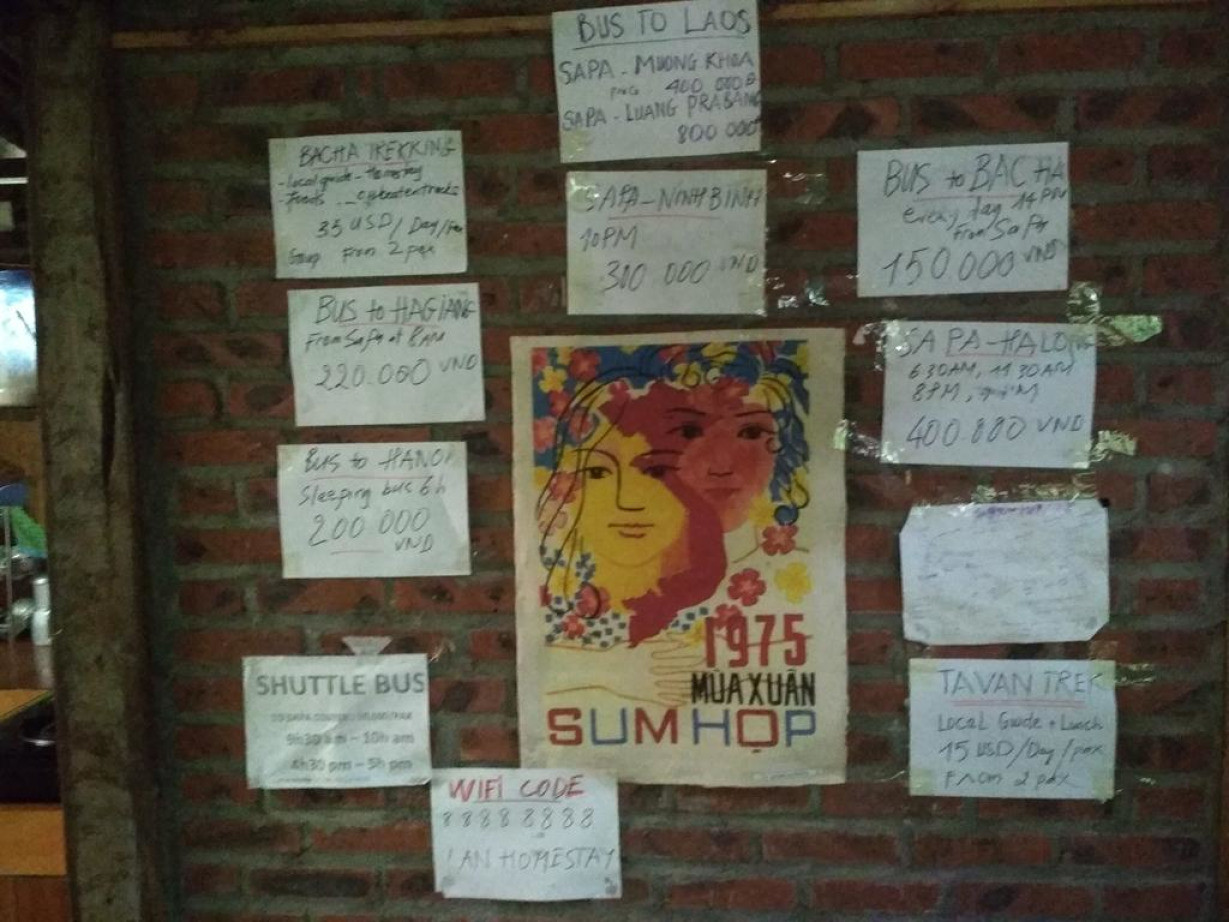 BUS TO LAOS
SAPA - MUONG KHOA
price 400 000đ
SAPA - LUANG PRABANG
800 000đ
BACHA TREKKING
- local guide - Homestay
- foods
35 USD/Day/Pax
Group From 2 pax
SAPA-NINH BINH
10PM
300 000 VND
BUS to BAC HA
every day 14PM
From SaPa
150 000 VND
BUS to HAGIANG
From SaPa at 8AM
220.000 VND
SA PA-HALONG
6 30AM, 11 30AM
8PM,
400.000 VND
BUS to HANOI
Sleeping bus 6h
200 000
VND
1975
MÙA XUÂN
SUM HỌP
SHUTTLE BUS
9h30 am – 10h am
4h30 pm – 5h pm
TAVAN TREK
Local Guide + Lunch
15 USD/Day/pax
From 2 pax
WIFI CODE
8 8 8 8 8 8 8 8
LAN HOMESTAY